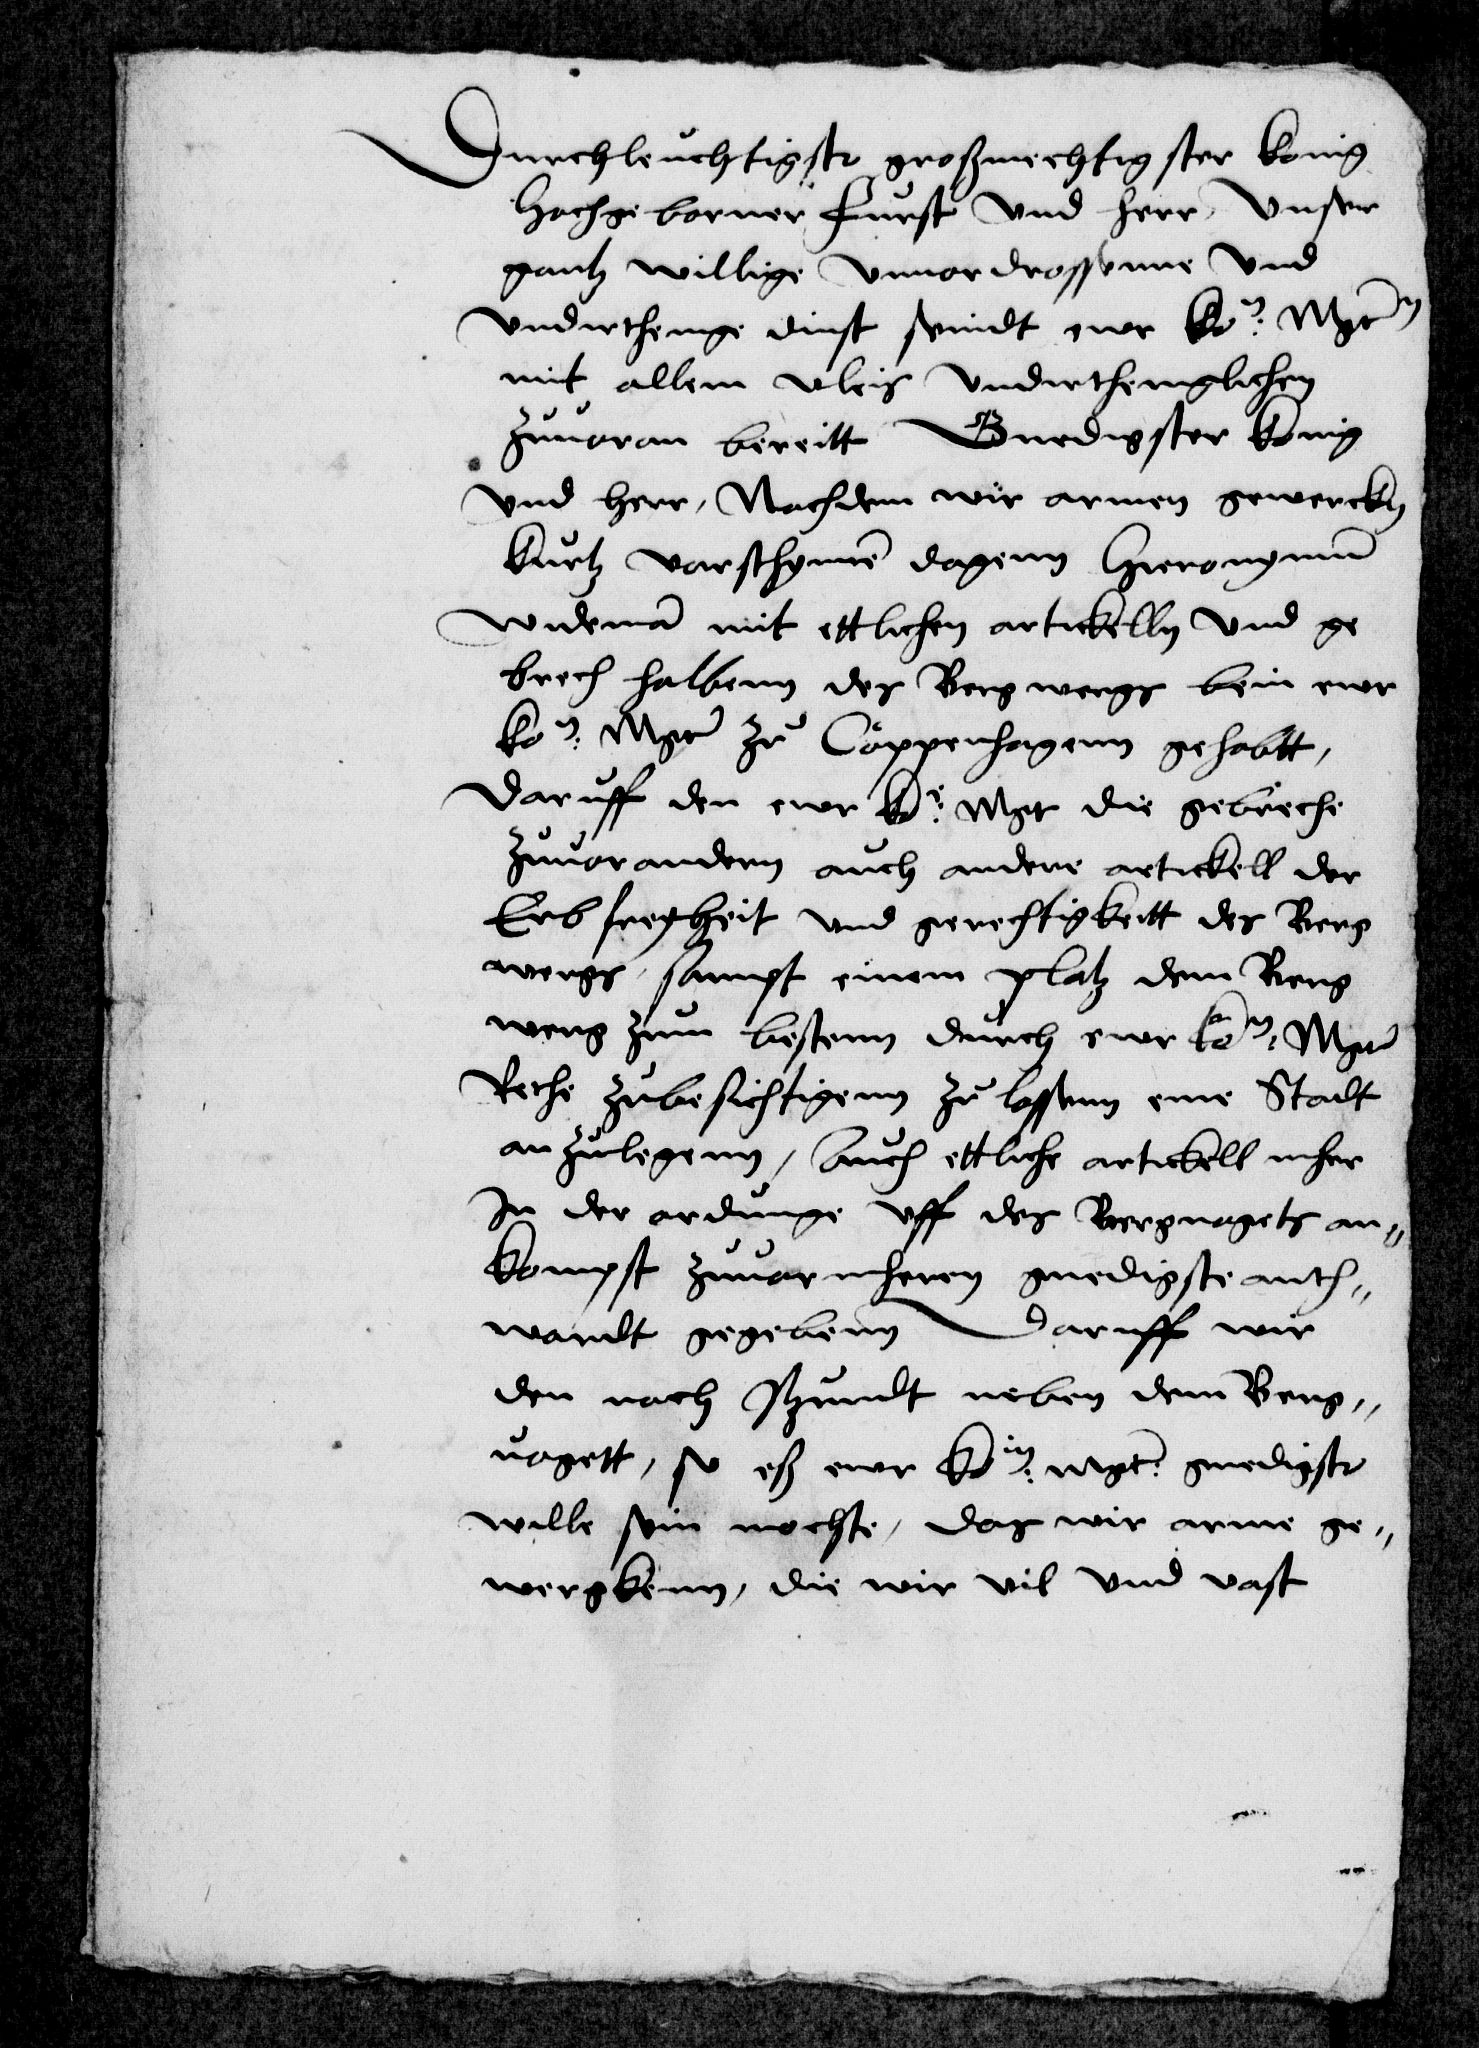 Durchleuchtigster großmechtigster konig
Hochgeborner Furst vnd herr, Vnser
gantz willige vnuordrossenne vnd
vndertheinge dinst seindt ewr ko: Mgt
mit allem vleis vndertheniglichen
zuuoran bereitt Gnedigster konig
vnd herr, Nachdem wir armen gewercken
kurtz vorschynne dagenn Hieronymu
widema mit ettlichen artickelln vnd ge
brech halbenn des Bergwergs bein ewr
kon: Mgt zu Coppenhagenn gehabtt,
Daruff den ewr ko: Mgt die gebreche
zuuorandern auch andere artickell der
Erb freyheit vnd gerechtigkeitt des Berg
wergs, sampt einem platz dem Berg
werg zum bestenn durch ewr kon: Mgt
Rethe zubesichtigenn zu lassenn eine Stadt
anzulegenn, Auch ettliche artickell mher
In der ordunge vff des Bergvogets an„
kompst zuuormheren gnedigste anth„
wordt gegebenn Daruff wir
den noch itzundt neben dem Berg„
vogett, so eß ewr kon: Mgt: gnedigster
wille sein mochte, das wir arme ge„
wergkenn, die wir vil vnd vast